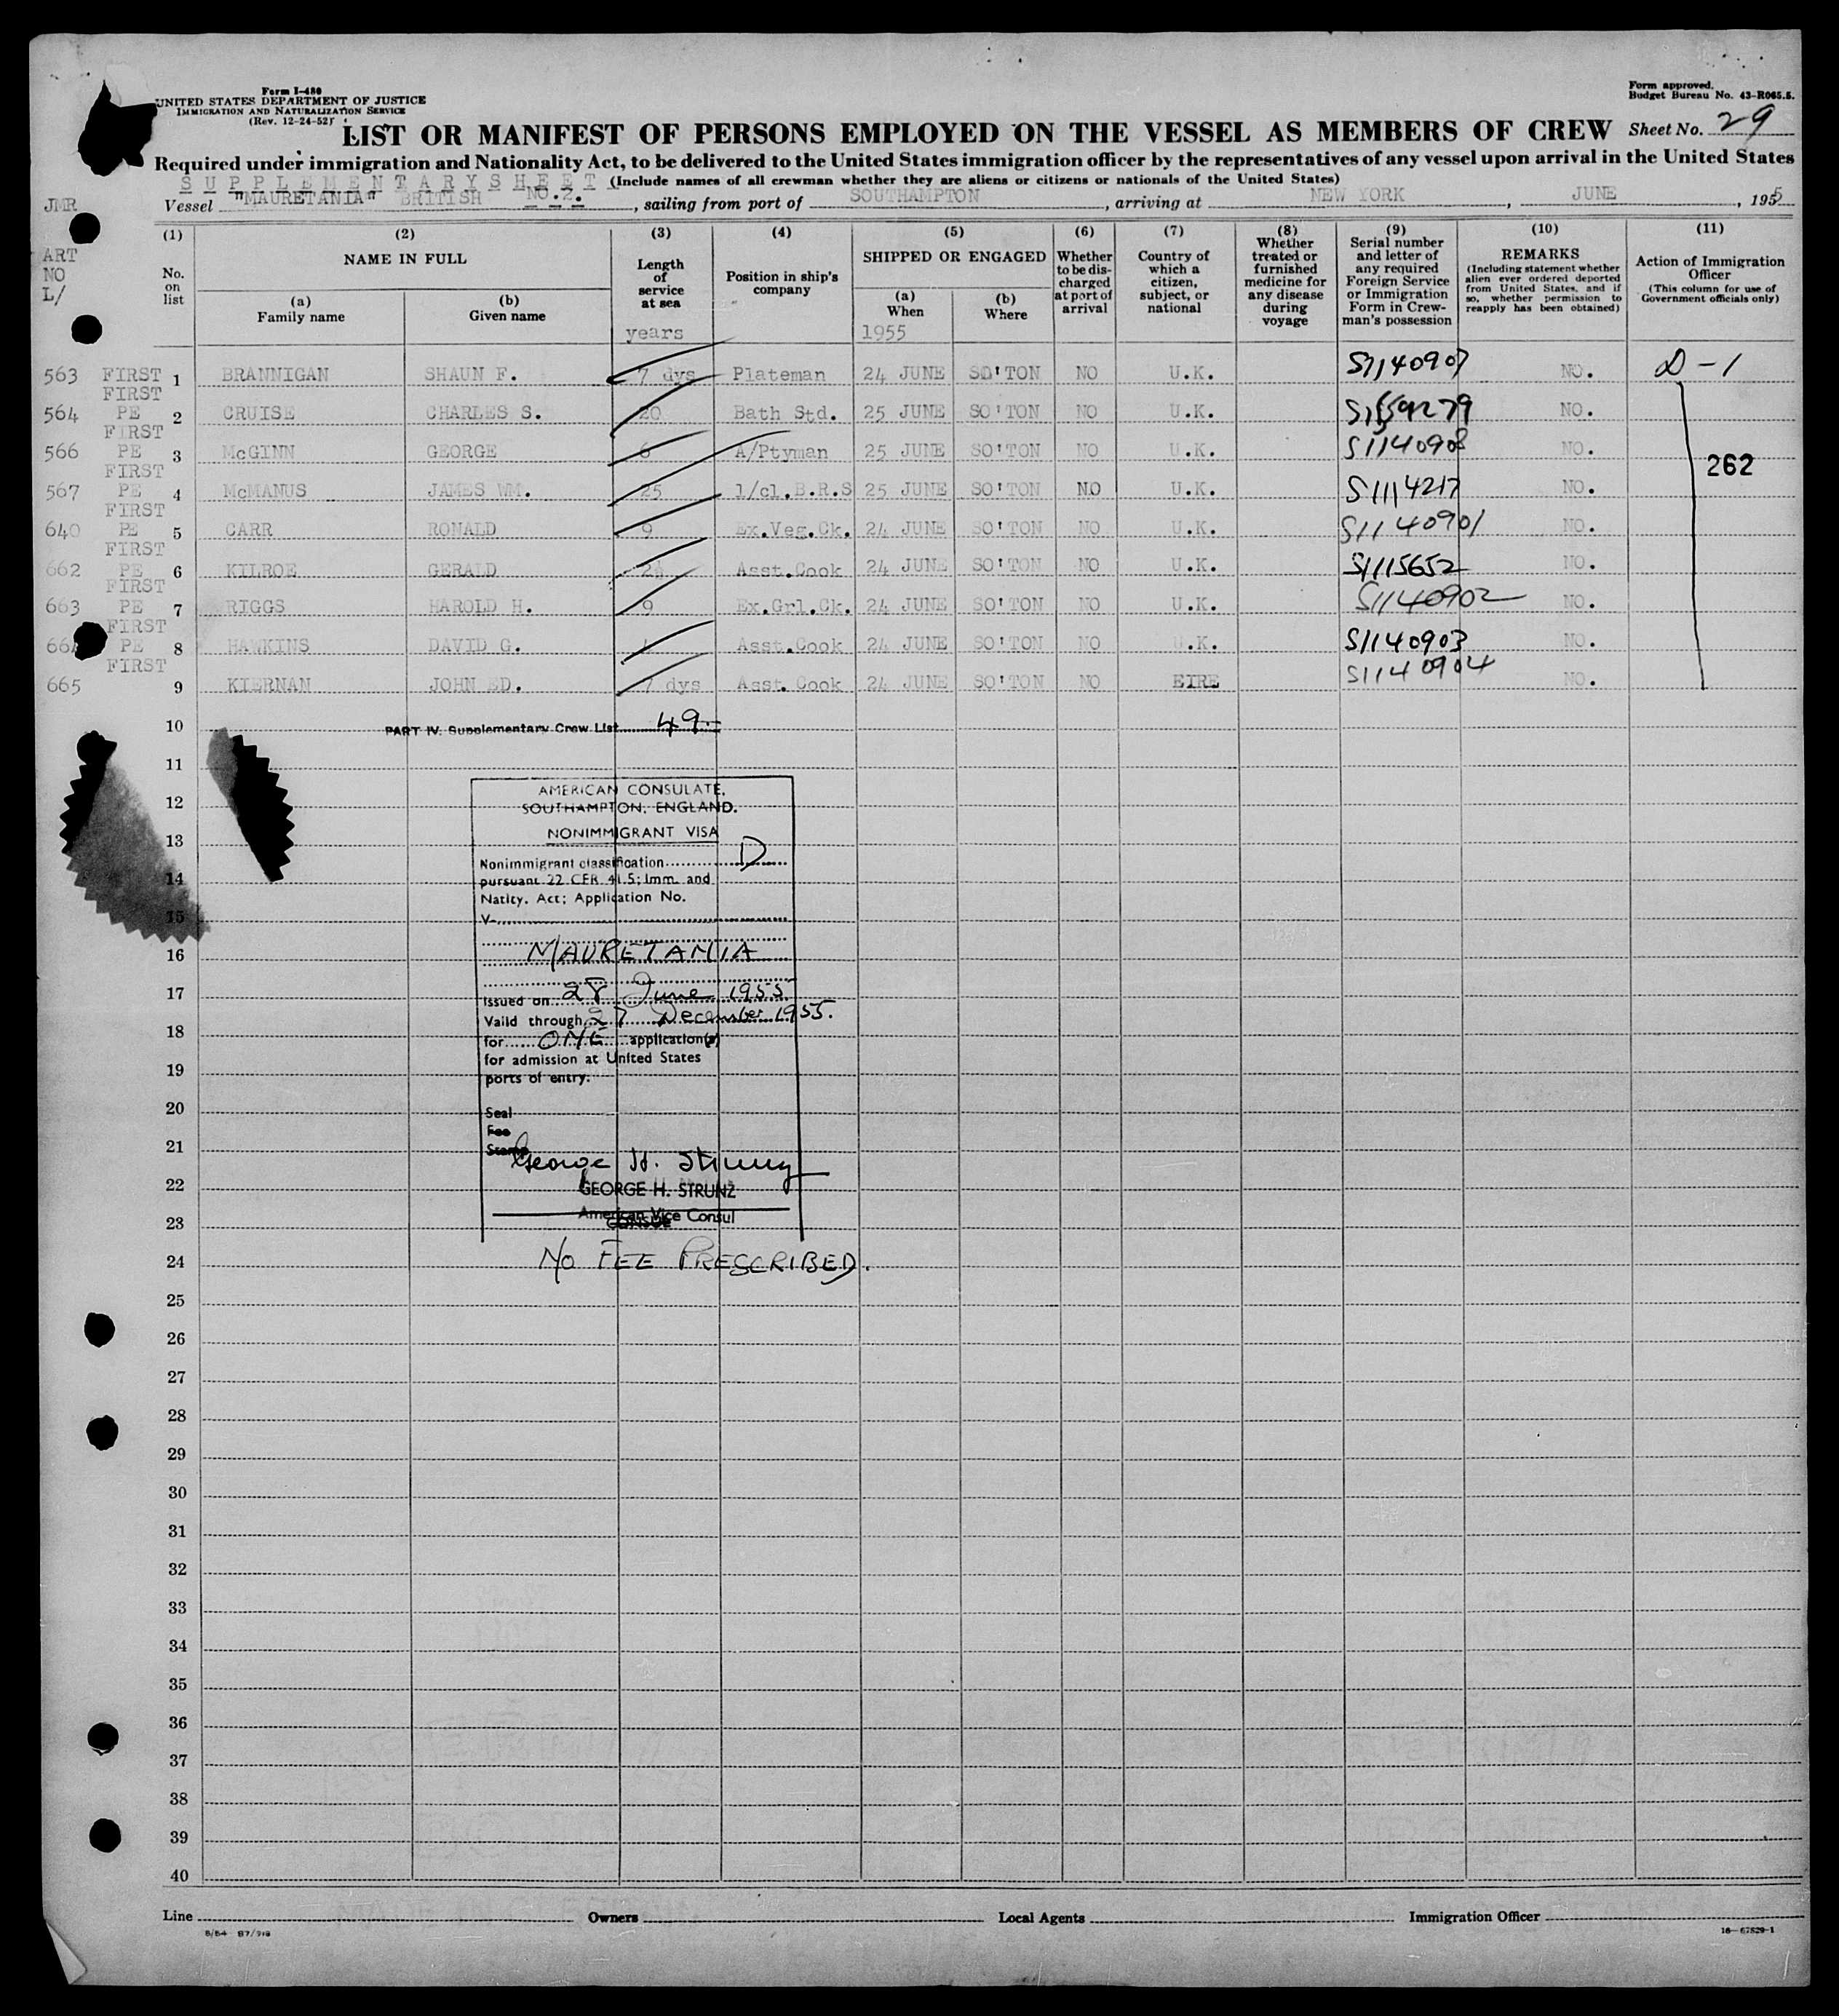 Form I-480
UNITED STATES DEPARTMENT OF JUSTICE
IMMIGRATION AND NATURALIZATION SERVICE
(Rev. 12-24-52)
Form approved.
Budget Bureau No. 43-R065.5.
LIST OR MANIFEST OF PERSONS EMPLOYED ON THE VESSEL AS MEMBERS OF CREW
Sheet No. 29
Required under immigration and Nationality Act, to be delivered to the United States immigration officer by the representatives of any vessel upon arrival in the United States
S U P P L E M E N T A R Y S H E E T (Include names of all crewman whether they are aliens or citizens or nationals of the United States)
JMR Vessel "MAURETANIA" BRITISH NO.2. , sailing from port of SOUTHAMPTON , arriving at NEW YORK , JUNE , 1955
ART
NO
L/
(1) No. on list
(2) NAME IN FULL
(a) Family name
(b) Given name
(3) Length of service at sea
years
(4) Position in ship's company
(5) SHIPPED OR ENGAGED
(a) When
1955
(b) Where
(6) Whether to be discharged at port of arrival
(7) Country of which a citizen, subject, or national
(8) Whether treated or furnished medicine for any disease during voyage
(9) Serial number and letter of any required Foreign Service or Immigration Form in Crewman's possession
(10) REMARKS (Including statement whether alien ever ordered deported from United States, and if so, whether permission to reapply has been obtained)
(11) Action of Immigration Officer (This column for use of Government officials only)
563 FIRST 1 BRANNIGAN SHAUN F. 7 dys Plateman 24 JUNE SO'TON NO U.K. S1140907 NO. D-1
FIRST
564 PE 2 CRUISE CHARLES S. 20 Bath Std. 25 JUNE SO'TON NO U.K. NO.
FIRST
566 PE 3 McGINN GEORGE 6 A/Ptyman 25 JUNE SO'TON NO U.K. S1140908 NO.
262
FIRST
567 PE 4 McMANUS JAMES WM. 25 1/cl.B.R.S 25 JUNE SO'TON NO U.K. S1114217 NO.
FIRST
640 PE 5 CARR RONALD 9 Ex.Veg.Ck. 24 JUNE SO'TON NO U.K. S1140901 NO.
FIRST
662 PE 6 KILROE GERALD Asst.Cook 24 JUNE SO'TON NO U.K. S1115652 NO.
FIRST
663 PE 7 RIGGS HAROLD H. 9 Ex.Grl.Ck. 24 JUNE SO'TON NO U.K. S1140902 NO.
FIRST
664 PE 8 HAWKINS DAVID G. Asst.Cook 24 JUNE SO'TON NO U.K. S1140903 NO.
FIRST
665 9 KIERNAN JOHN ED. 7 dys Asst. Cook 24 JUNE SO'TON NO EIRE S1140904 NO.
10
PART IV. Supplementary Crew List 49.-
11
AMERICAN CONSULATE,
12
SOUTHAMPTON, ENGLAND.
NONIMMIGRANT VISA
13
Nonimmigrant classification D
14
pursuant 22 CFR 41.5; Imm. and
Natity. Act; Application No.
15
V-
16
MAURETANIA
17
Issued on 28 June 1955
Valid through 27 December 1955.
18
for ONE application(s)
for admission at United States
19
ports of entry.
20
Seal
Fee
21
Stamp
George H. Strunz
22
GEORGE H. STRUNZ
American Vice Consul
23
CONSUL
24
NO FEE PRESCRIBED.
25
26
27
28
29
30
31
32
33
34
35
36
37
38
39
40
Line Owners Local Agents Immigration Officer
16—67829-1